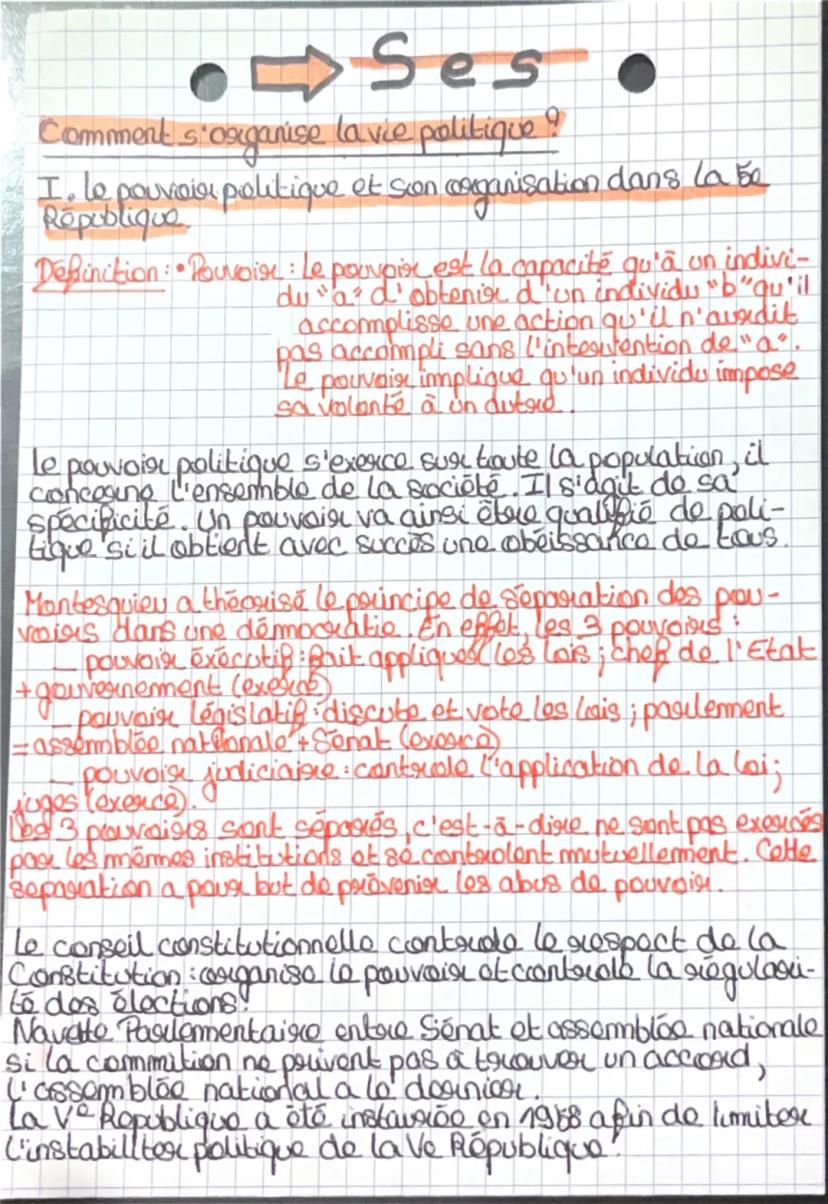 Ses
Comment s'organise la vie politique ?
I. le pouvoir politique et son organisation dans la 5e
République.
Définition : • Pouvoir : le pouvoir est la capacité qu'à un indivi-
du "a" d'obtenir d'un individu "b" qu'il
accomplisse une action qu'il n'aurait
pas accompli sans l'intervention de "a".
Le pouvoir implique qu'un individu impose
sa volonté à un autre.
le pouvoir politique s'exerce sur toute la population, il
concerne l'ensemble de la société. Il s'agit de sa
spécificité. Un pouvoir va ainsi être qualifié de poli-
tique si il obtient avec succès une obéissance de tous.
Montesquieu a théorisé le principe de séparation des pou-
voirs dans une démocratie. En effet, les 3 pouvoirs :
_ pouvoir éxécutif : fait appliquer les lois ; chef de l'Etat
+ gouvernement (exercé)
_ pouvoir législatif : discute et vote les lois ; parlement
= assemblée nationale + Sénat (exercé)
_ pouvoir judiciaire : controle l'application de la loi ;
juges (exercé).
Les 3 pouvoirs sont séparés, c'est-à-dire ne sont pas exercés
par les mêmes institutions et se controlent mutuellement. Cette
separation a pour but de prévenir les abus de pouvoir.
Le conseil constitutionnelle controle le respect de la
Constitution : organise le pouvoir et controle la régulari-
té des élections.
Navette Parlementaire entre Sénat et assemblée nationale
si la commition ne peivent pas à trouver un accord,
l'assemblée national a le dernier.
La Ve République a été instaurée en 1958 afin de limiter
l'instabilliter politique de la Ve République.